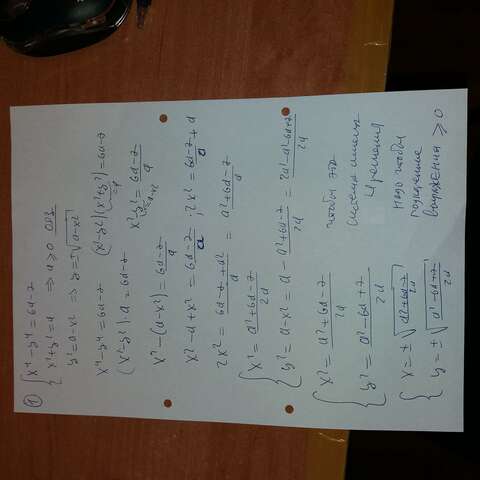 ① { x⁴-y⁴=6a-7
x²+y²=a ⇒ a≥0 ОДЗ
y²=a-x² ⇒ y=±√(a-x²)
x⁴-y⁴=6a-7 (x²-y²)(x²+y²)=6a-7
=a
(x²-y²)·a=6a-7 x²-y²=(6a-7)/a
x²-(a-x²)=(6a-7)/a
x²-a+x²=(6a-7)/a; 2x²=(6a-7)/a+a
2x²=(6a-7+a²)/a = (a²+6a-7)/a
{ x²=(a²+6a-7)/2a
y²=a-x²=a-(a²+6a-7)/2a=(2a²-a²-6a+7)/2a
{ x²=(a²+6a-7)/2a чтобы эта
y²=(a²-6a+7)/2a система имела
4 решения
{ x=±√((a²+6a-7)/2a) надо чтобы
y=±√((a²-6a+7)/2a) подкоренные
выражения ≥0